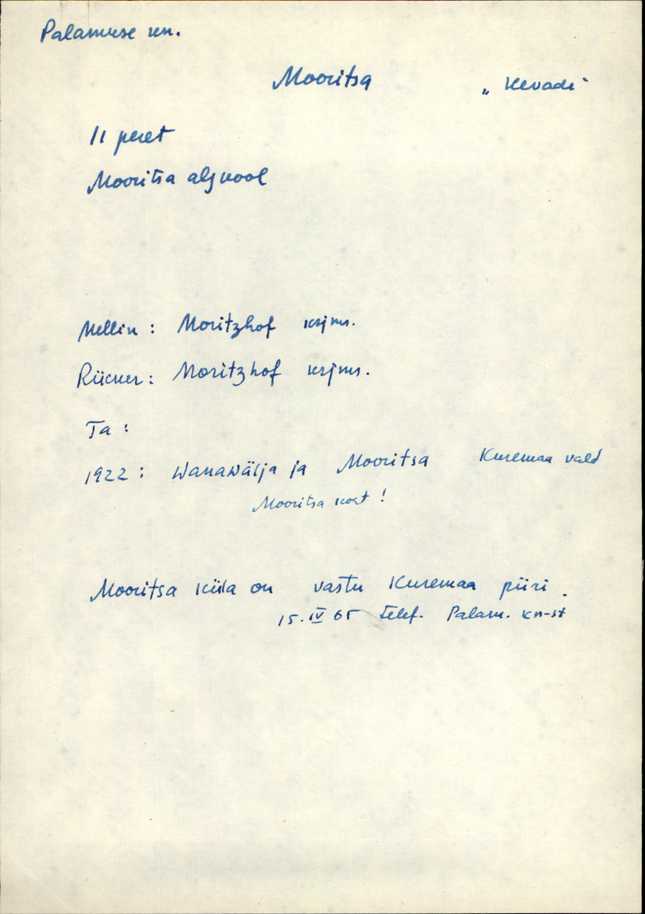 Palamuse kn.
Mooritsa „Kevade"
11 peret
Mooritsa algkool
Mellin: Moritzhof krjms.
Rücker: Moritzhof krjms.
Ta:
1922: Wanawälja ja Mooritsa Kuremaa vald
Mooritsa !
Mooritsa küla on vastu Kuremaa piiri.
15.IV 65 Telef. Palam. kn-st